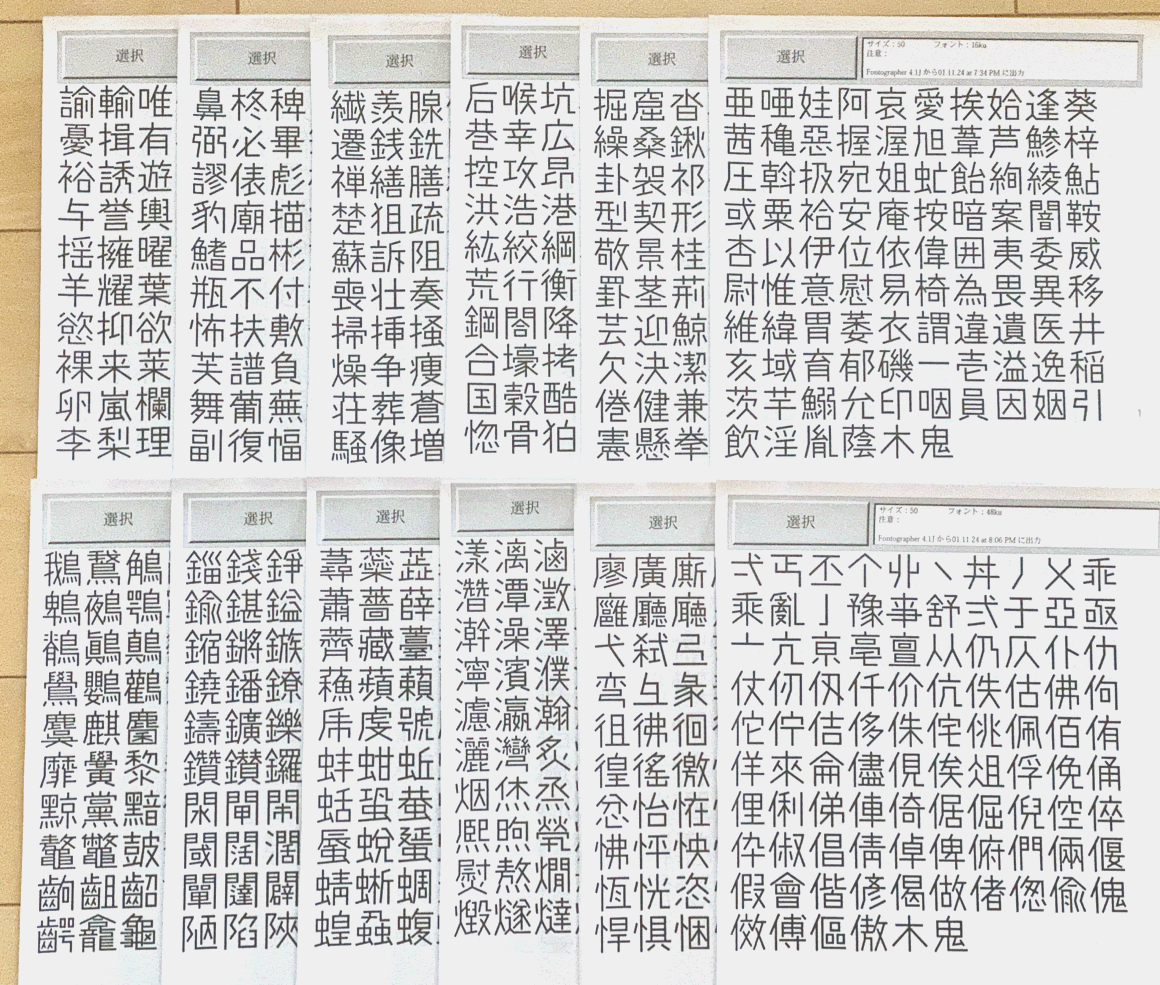 選択
諭輸唯
憂揖有
裕誘遊
与誉輿
揺擁曜
羊耀葉
慾抑欲
裸来莱
卵嵐欄
李梨理
選択
鼻柊稗
弼必畢
謬俵彪
豹廟描
鰭品彬
瓶不付
怖扶敷
芙譜負
舞葡蕪
副復幅
選択
繊羨腺
遷銭銑
禅繕膳
楚狙疏
蘇訴阻
喪壮奏
掃挿掻
燥争痩
荘葬蒼
騒像増
選択
后喉坑
巷幸広
控攻昂
洪浩港
紘絞綱
荒行衡
鋼閤降
合壕拷
国穀酷
惚骨狛
選択
掘窟沓
繰桑鍬
卦袈祁
型契形
敬景桂
罫茎荊
芸迎鯨
欠決潔
倦健兼
憲懸拳
選択
サイズ：50 フォント：16ku
注意：
Fontographer 4.1J から01.11.24 at 7:34 PM に出力
亜唖娃阿哀愛挨姶逢葵
茜穐惡握渥旭葦芦鯵梓
圧斡扱宛姐虻飴絢綾鮎
或粟袷安庵按暗案闇鞍
杏以伊位依偉囲夷委威
尉惟意慰易椅為畏異移
維緯胃萎衣謂違遺医井
亥域育郁磯一壱溢逸稲
茨芋鰯允印咽員因姻引
飲淫胤蔭木鬼
選択
鵝鵞鵤
鵯鵺鶚
鶺鷆鷏
鷽鸚鸛
麌麒麕
靡黌黎
黥黨黯
鼇鼈皷
齣齟齠
齶龕龜
選択
錙錢錚
鍮鍖鎰
鏥鏘鏃
鐃鐇鐐
鑄鑛鑠
鑽鑚鑼
閖閘閙
閾闊濶
闡闥闢
陋陷陜
選択
蕁蘂蕋
蕭薔薛
薺藏薹
蘓蘋藾
乕虔號
蚌蚶蚯
蛄蛩蛬
蜃蛻蜑
蜻蜥蜩
蝗蝨蝮
選択
漾漓滷
濳潭澂
澣澡澤
濘濱濮
濾瀛瀚
灑灣炙
烟烋烝
煕煦煢
熨熬燗
燬燧燵
選択
廖廣廝
廱廳廰
弋弑弖
弯彑彖
徂彿徊
徨徭徼
忿怡恠
怫怦怏
恆恍恣
悍惧悃
選択
サイズ：50 フォント：48ku
注意：
Fontographer 4.1J から01.11.24 at 8:06 PM に出力
弌丐丕个丱丶丼丿乂乖
乘亂亅豫亊舒弍于亞亟
亠亢亰亳亶从仍仄仆仂
仗仞仭仟价伉佚估佛佝
佗佇佶侈侏侘佻佩佰侑
佯來侖儘俔俟俎俘俛俑
俚俐俤俥倚倨倔倪倥倅
伜俶倡倩倬俾俯們倆偃
假會偕偐偈做偖偬偸傀
傚傅傴傲木鬼